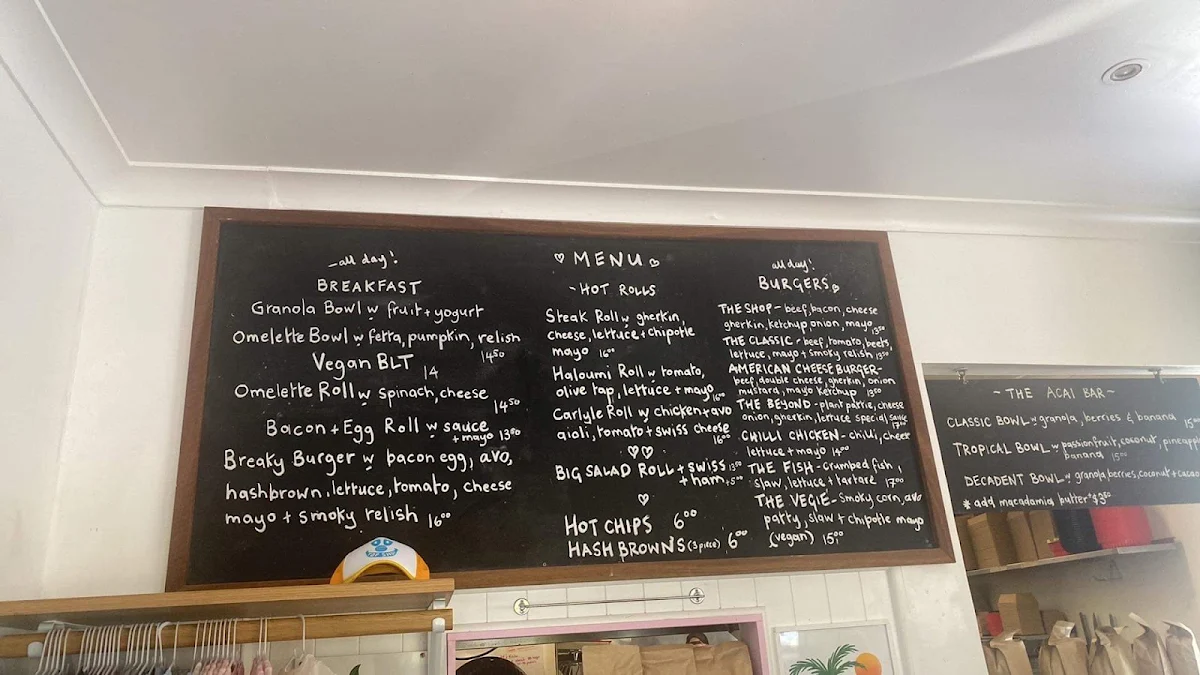 -all day!
BREAKFAST
Granola Bowl w fruit + yogurt
Omelette Bowl w fetta, pumpkin, relish
14⁵⁰
Vegan BLT 14
Omelette Roll w spinach, cheese
14⁵⁰
Bacon + Egg Roll w sauce
+ mayo 13⁵⁰
Breaky Burger w bacon egg, avo,
hashbrown, lettuce, tomato, cheese
mayo + smoky relish 16⁰⁰
♡ MENU ♡
- HOT ROLLS
Steak Roll w gherkin,
cheese, lettuce + chipotle
mayo 16⁰⁰
Haloumi Roll w tomato,
olive tap, lettuce + mayo 16⁰⁰
Carlyle Roll w chicken + avo
aioli, tomato + swiss cheese
16⁰⁰
♡♡
BIG SALAD ROLL + SWISS 13⁵⁰
+ ham
♡
HOT CHIPS 6⁰⁰
HASH BROWNS (3 piece) 6⁰⁰
all day!
BURGERS
THE SHOP - beef, bacon, cheese
gherkin, ketchup onion, mayo 13⁵⁰
THE CLASSIC - beef, tomato, beets,
lettuce, mayo + smoky relish 13⁵⁰
AMERICAN CHEESE BURGER-
beef, double cheese, gherkin, onion
mustard, mayo ketchup 13⁵⁰
THE BEYOND - plant pattie, cheese
onion, gherkin, lettuce special sauce
CHILLI CHICKEN - chilli, cheer
lettuce + mayo 14⁰⁰
THE FISH - crumbed fish,
slaw, lettuce + tartare 17⁰⁰
THE VEGIE - smoky corn, avo
patty, slaw + chipotle mayo
(vegan) 15⁰⁰
~ THE ACAI BAR ~
CLASSIC BOWL w granola, berries & banana 15⁰⁰
TROPICAL BOWL w passionfruit, coconut, pineapple
banana 15⁰⁰
DECADENT BOWL w granola, berries, coconut + cacao
* add macadamia butter $3⁵⁰